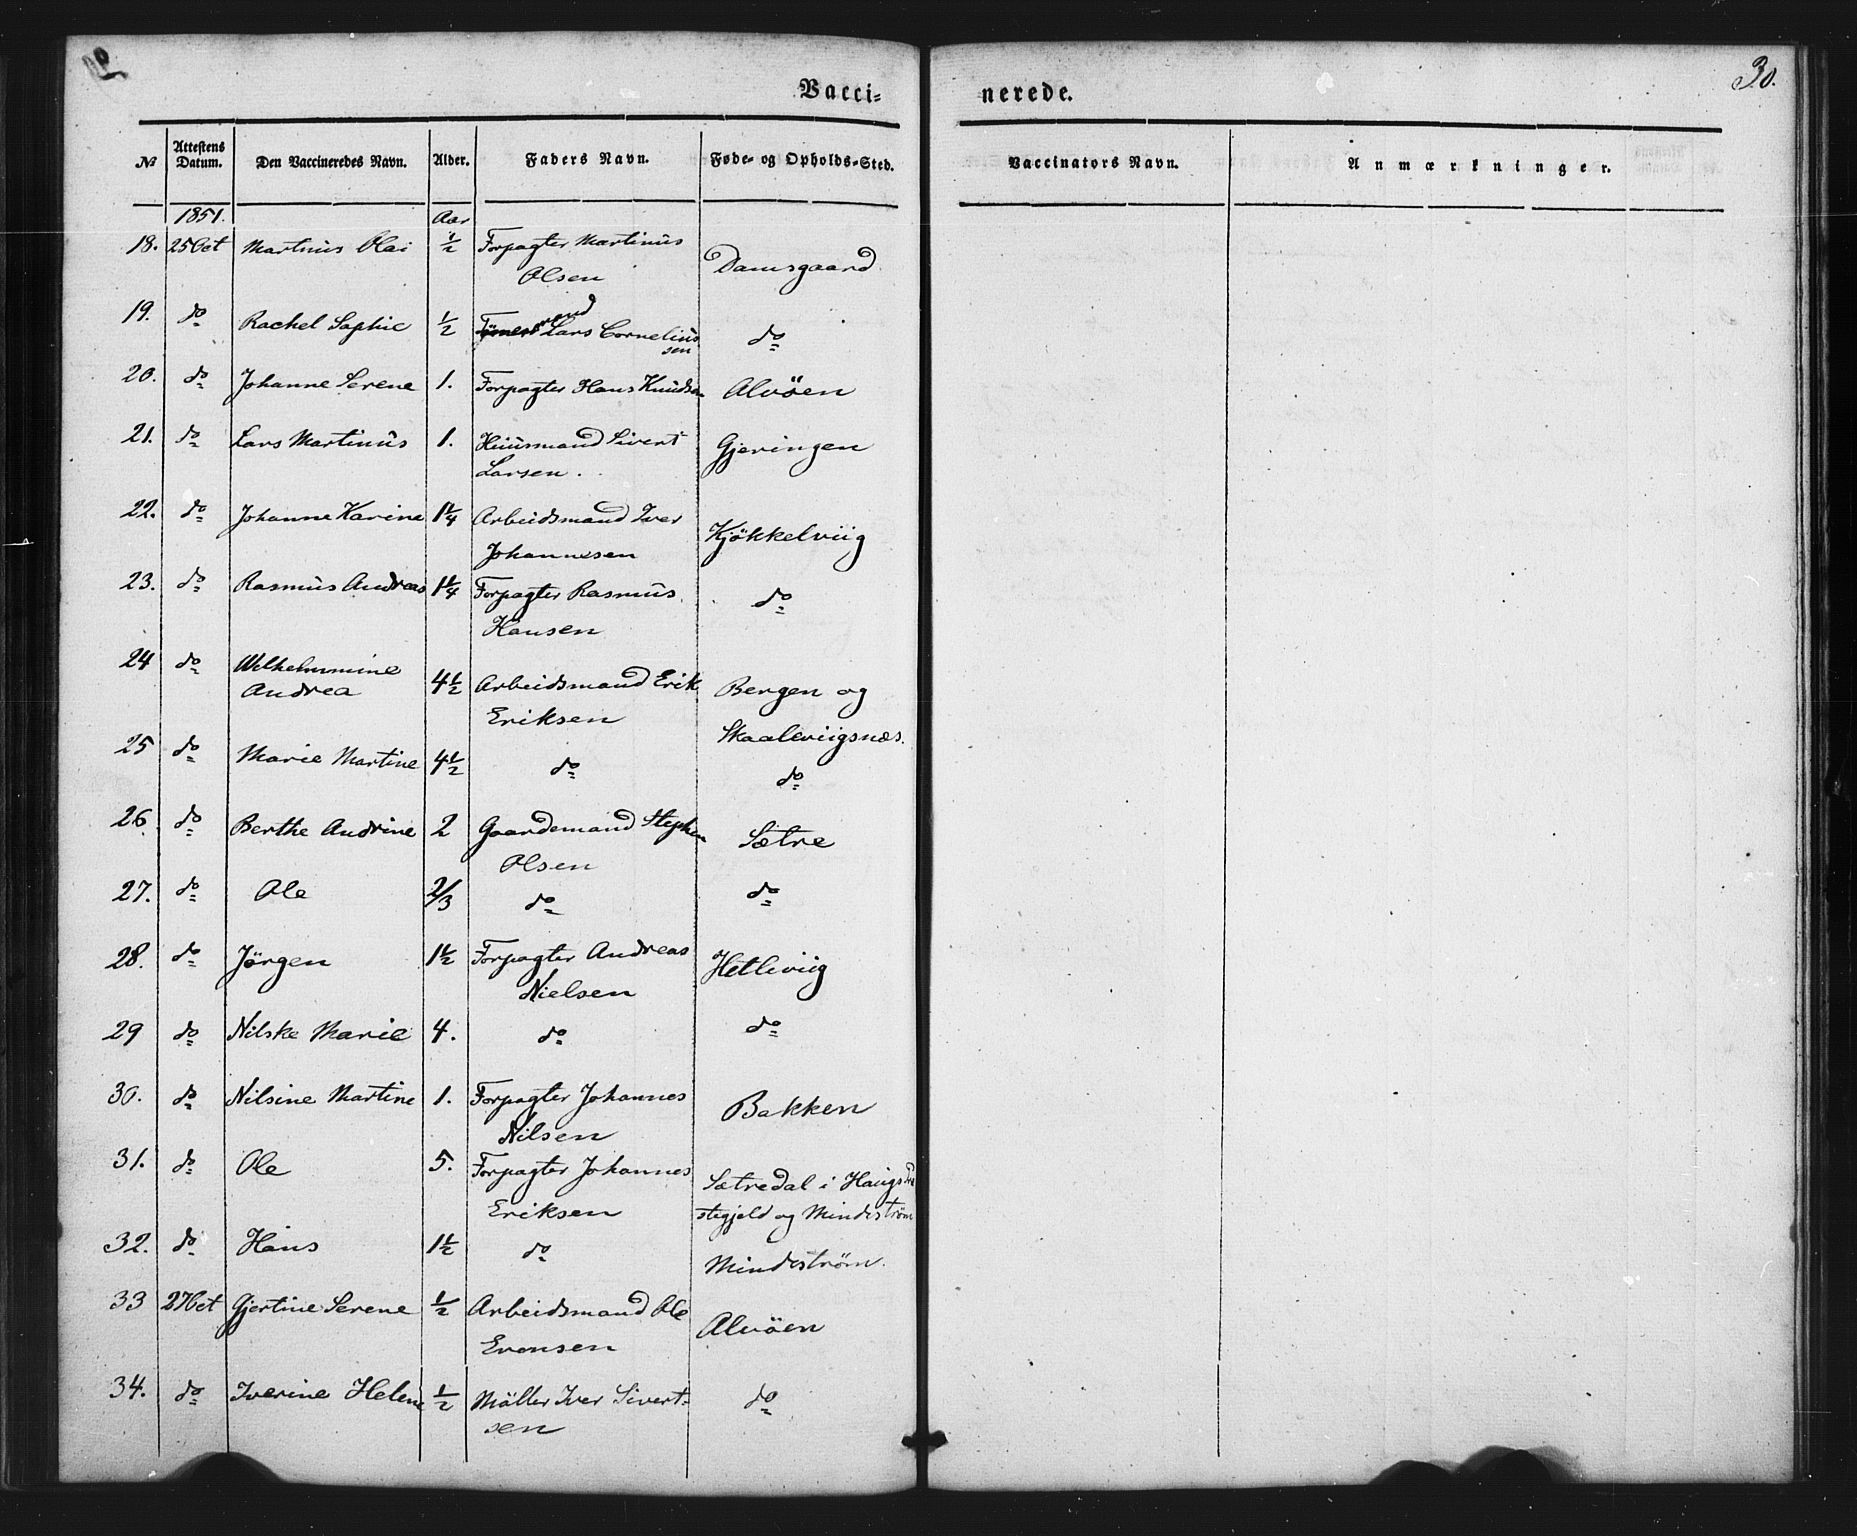 30.
Vacci- nerede.
№ Attestens Datum. Den Vaccineredes Navn. Alder. Faders Navn. Føde- og Opholds-Sted. Vaccinators Navn. Anmærkninger.
1851. Aar
18. 25 Oct Martinus Olai ½ Forpagter Martinus
Olsen Damsgaard
19. do Rachel Sophie ½ Lars Cornelius
sen do
20. do Johanne Serene 1. Forpagter Hans Knudsen Alvöen
21. do Lars Martinus 1. Huusmand Sivert
Larsen. Gjeringen
22. do Johanne Karine 1¼ Arbeidsmand Iver
Johannesen Kjökkelviig
23. do Rasmus Andreas 1¼ Forpagter Rasmus
Hansen do
24 do Wilhelmmine
Andrea 4½ Arbeidsmand Erik
Eriksen Bergen og
Skaaleviigsnæs.
25 do Marie Martine 4½ do do
26. do Berthe Andrine 2 Gaardemand Stephen
Olsen Sætre
27. do Ole 2/3 do do
28. do Jörgen 1½ Forpagter Andreas
Nielsen Hetleviig
29 do Nilske Marie 4. do do
30. do Nilsine Martine 1. Forpagter Johannes
Nilsen Bakken
31. do Ole 5. Forpagter Johannes
Eriksen Sætredal i Haugs Præ
stegjeld og Mindeström
32. do Hans 1½ do Mindeström.
33 27 Oct Gjertine Serene ½ Arbeidsmand Ole
Evensen Alvöen
34. do Iverine Helene ½ Möller Iver Sivert-
sen do